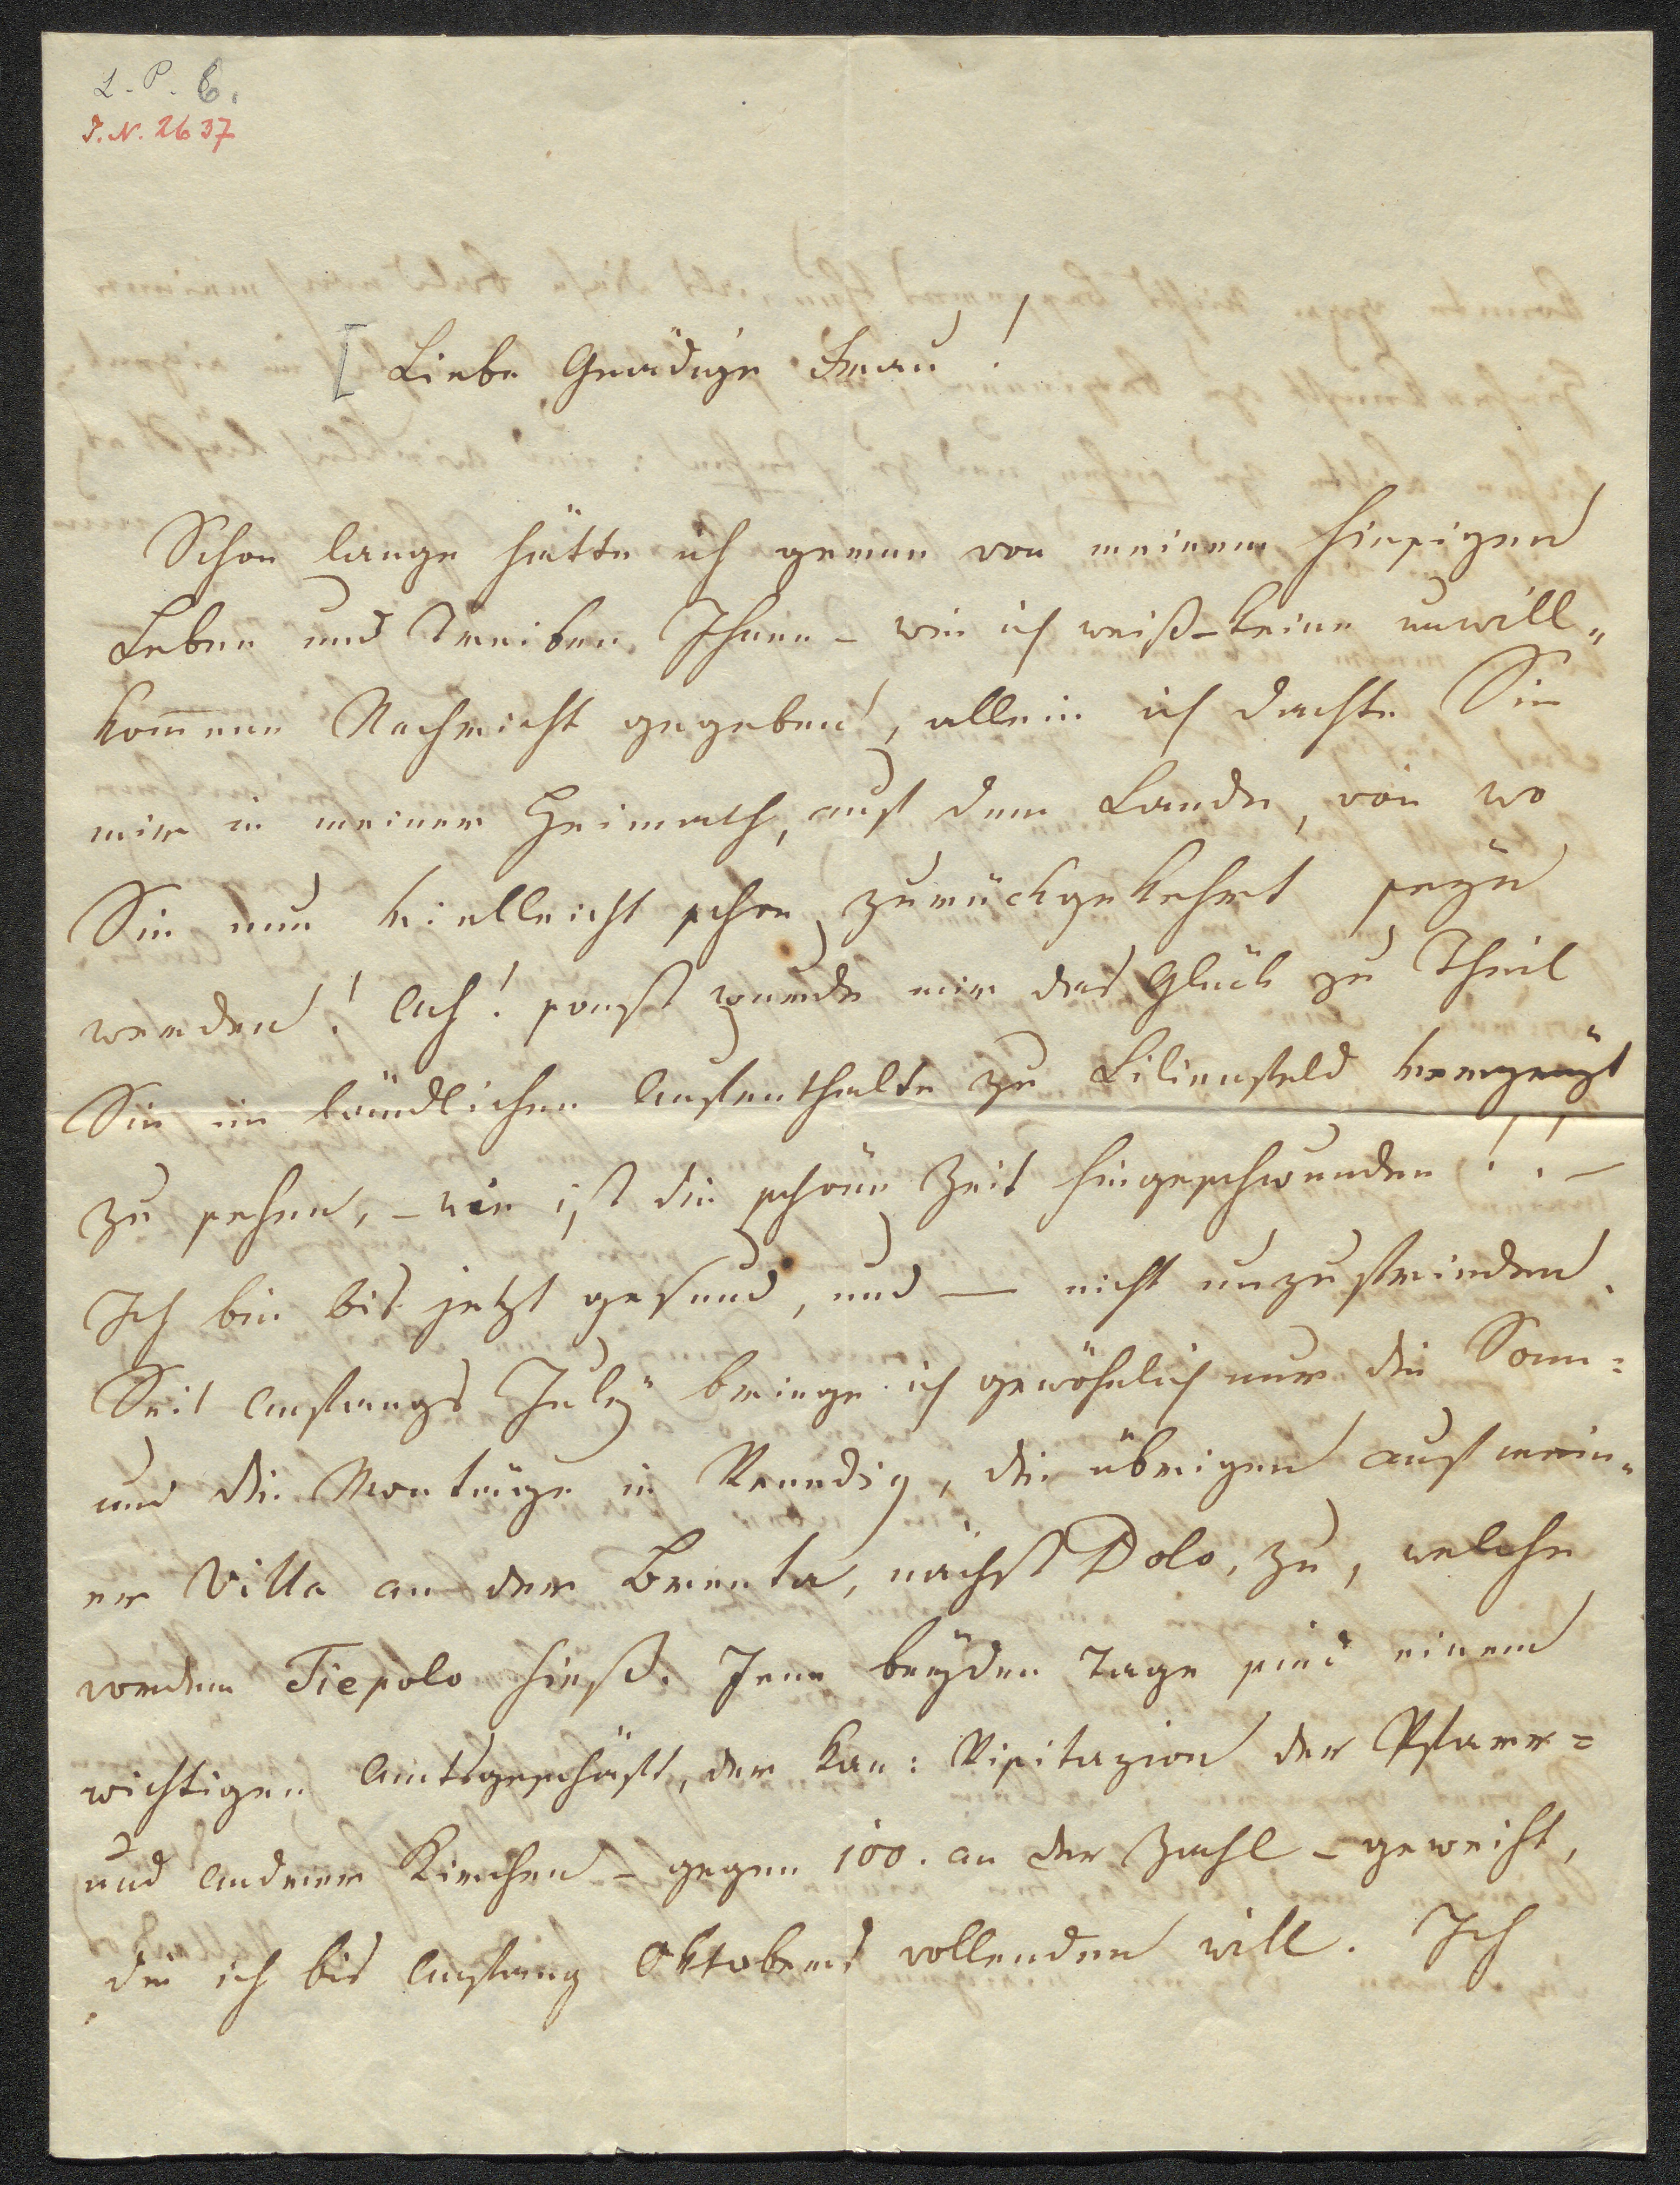 L. P. 6.
I. N. 2637
[ Liebe Gnädige Frau!
Schon lange hätte ich gerne von meinem hiesigen
Leben und Treiben Ihnen – wie ich weiß – keine unwill„
kom̄ene Nachricht gegeben, allein ich dachte Sie
mir in meiner Heimath, auf dem Lande, von wo
Sie nun vielleicht schon zurückgekehrt seyn
werden! Ach! sonst wurde mir das Glück zu Theil
Sie im ländlichen Aufenthalte zu Lilienfeld vergnügt
zu sehen, – wie ist die schöne Zeit hingeschwunden!! –
Ich bin bis jetzt gesund, und — nicht unzufrieden.
Seit Anfangs July bringe ich gewöhnlich nur die Sonn=
und die Montäge in Venedig, die übrigen auf mein„
er Villa an der Brenta, nächst Dolo, zu, welche
vordem Tiepolo hieß. Jene beyden Tage sind einem
wichtigen Amtsgeschäft, der kan: Visitazion der Pfarr=
und anderer Kirchen – gegen 100. an der Zahl – geweiht,
die ich bis Anfang Oktobers vollenden will. Ich